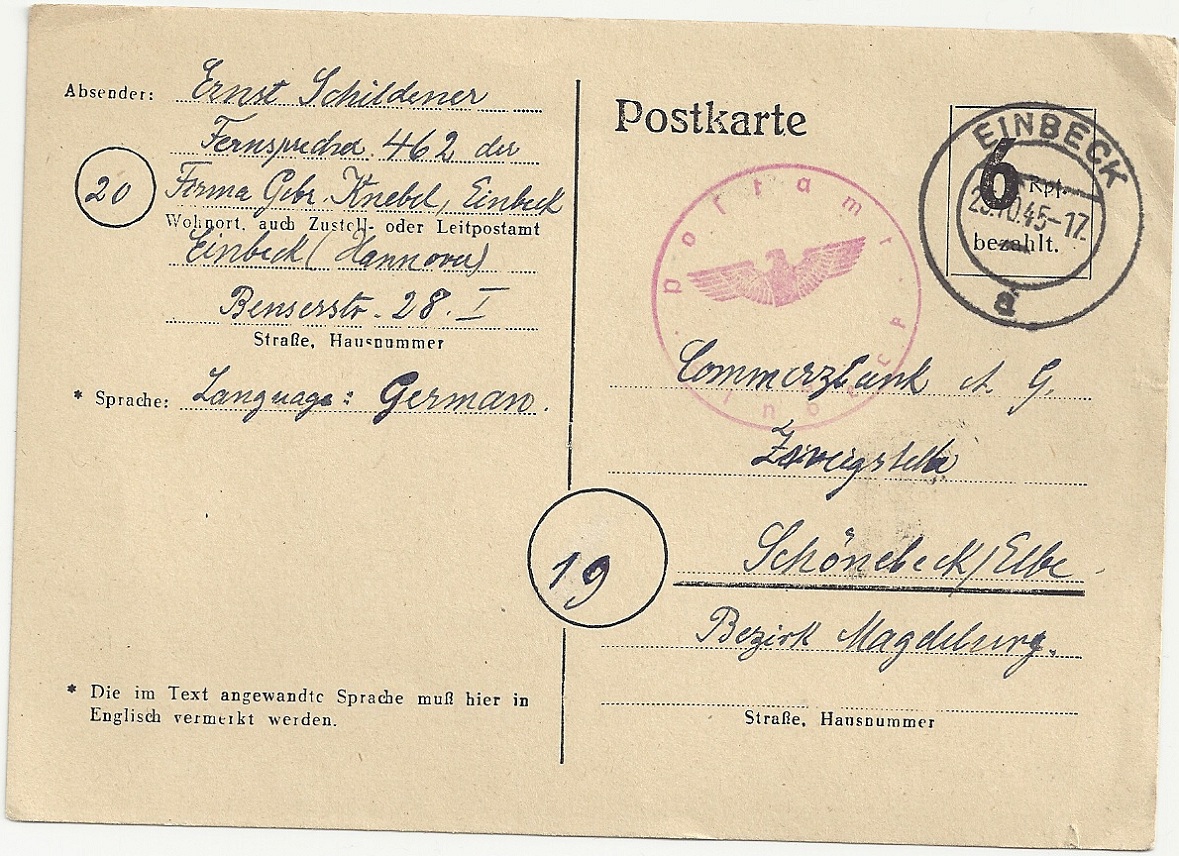 Absender: Ernst Schildener
Fernsprecher 462 der
20
Firma Gebr. Knebel, Einbeck
Wohnort, auch Zustell- oder Leitpostamt
Einbeck (Hannover)
Benserstr. 28. I
Straße, Hausnummer
* Sprache: Language: German.
* Die im Text angewandte Sprache muß hier in
Englisch vermerkt werden.
Postkarte
6 Rpf.
bezahlt.
EINBECK
45-17
a
Commerzbank A G.
Zweigstelle
19
Schönebeck/Elbe
Bezirk Magdeburg.
Straße, Hausnummer